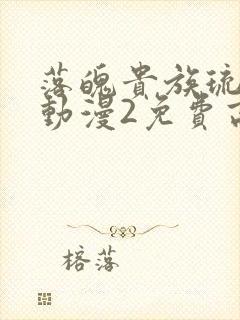 落魄貴族琉
動漫2免費
榕落